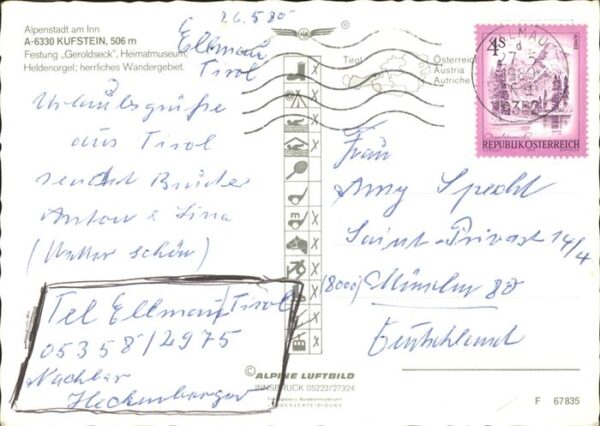 Alpenstadt am Inn
A-6330 KUFSTEIN, 506 m
Festung „Geroldseck", Heimatmuseum,
Heldenorgel; herrliches Wandergebiet.
26.5.80
Ellmau
Tirol
Urlaubsgrüße
aus Tirol
sendet Bruder
Anton & Lina
(Wetter schön)
Tel Ellmau/Tirol
05358/2975
Nachbar
Heckenberger
Tirol
Österreich
Austria
Autriche
ELLMAU
1980
6352
4S
REPUBLIK ÖSTERREICH
Frau
Amy Specht
Saint-Privat 14/4
(8000) München 80
Deutschland
© ALPINE LUFTBILD
INNSBRUCK 05222/27324
F 67835